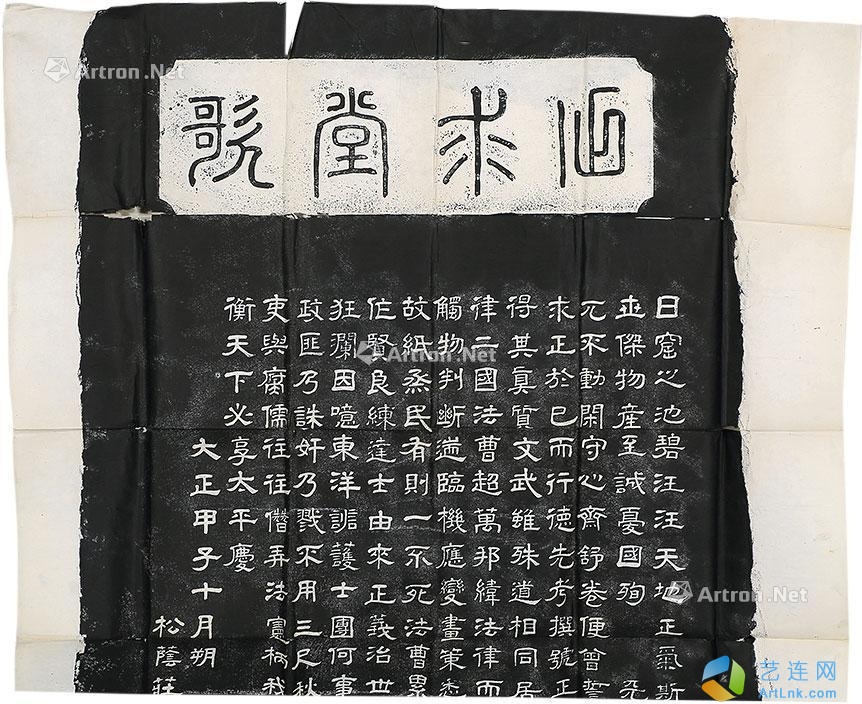 求堂歌
日窟之池碧汪汪天地正氣斯
世傑物產至誠憂國殉
兀不動閑守心齋舒卷便曾誓
求正於己而行德先考撰號正
得其眞質文武雖殊道相同居
律二國法曹超萬邦緯法律而
觸物判斷臨機應變畫策悉
故紙烝民有則一不死法曹累
任賢良練達士由來正義治世
狂瀾因噫東洋護士團何事
政匪乃誅奸乃戮不用三尺秋
吏與腐儒往往僭弄法憲我
衡天下必享太平慶
大正甲子十月朔
松蔭莊
Artron.Net
Artron.Net
Artron.Net
艺连网
ArtLnk.com